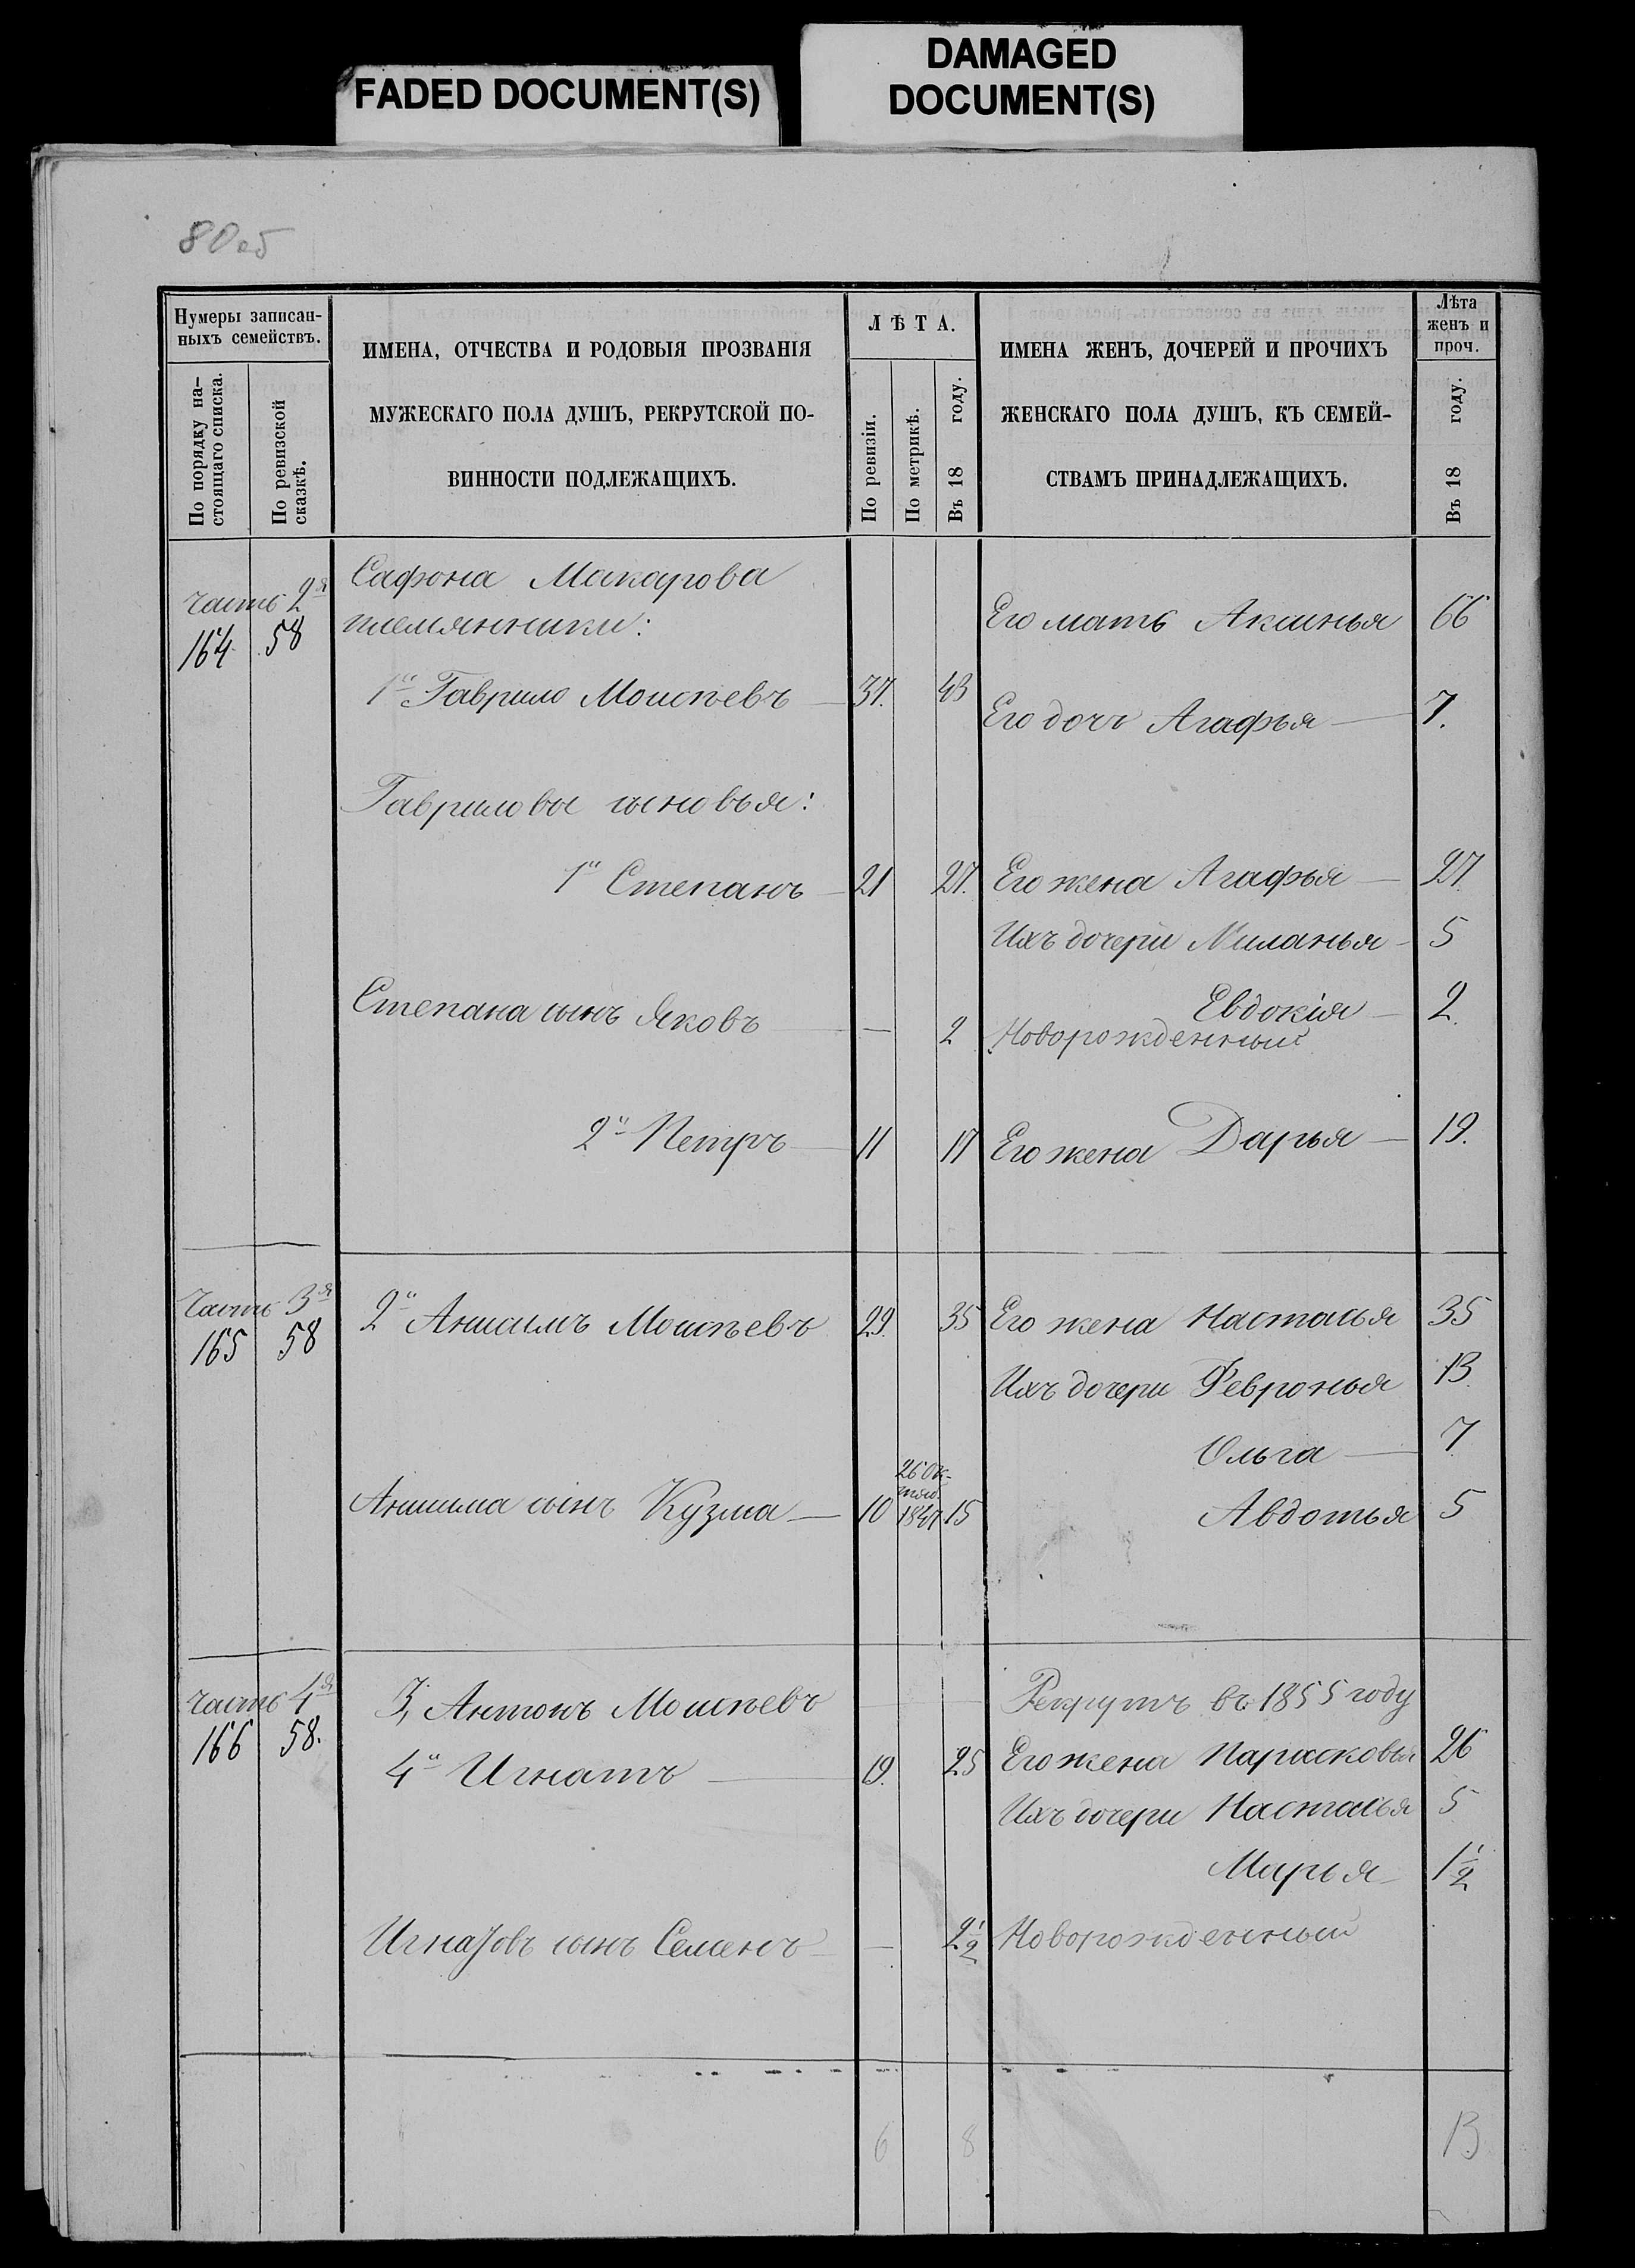 FADED DOCUMENT(S)
DAMAGED
DOCUMENT(S)
80 об
Нумеры записан-
ныхъ семействъ.
По порядку на-
стоящаго списка.
По ревизской
сказкѣ.
ИМЕНА, ОТЧЕСТВА И РОДОВЫЯ ПРОЗВАНІЯ
МУЖЕСКАГО ПОЛА ДУШЪ, РЕКРУТСКОЙ ПО-
ВИННОСТИ ПОДЛЕЖАЩИХЪ.
ЛѢТА.
По ревизіи.
По метрикѣ.
Въ 18 году.
ИМЕНА ЖЕНЪ, ДОЧЕРЕЙ И ПРОЧИХЪ
ЖЕНСКАГО ПОЛА ДУШЪ, КЪ СЕМЕЙ-
СТВАМЪ ПРИНАДЛЕЖАЩИХЪ.
Лѣта
женъ и
проч.
Въ 18 году.
часть 2я
164 58
Сафона Макарова
племянники:
Его мать Аксинья 66
1й Гаврило Моисѣевъ — 37. 43
Его дочь Агафья — 7.
Гавриловы сыновья:
1й Степанъ — 21 27. Его жена Агафья — 27.
Ихъ дочери Миланья — 5
Евдокія — 2.
Степана сынъ Яковъ — 2 Новорожденный
2й Петръ — 11 17 Его жена Дарья — 19.
Часть 3я
165 58
2й Анисимъ Моисѣевъ 29. 35 Его жена Насталья 35
Ихъ дочери Февронья 13
Ольга — 7
Анисима сынъ Кузма — 10 26 Ок-
тяб.
1847 15
Авдотья 5
часть 4я
166 58.
3, Антонъ Моисѣевъ — — Рекрутъ въ 1855 году
4й Игнатъ — 19. 25 Его жена Парасковья 26
Ихъ дочери Насталья 5
Марья — 1½
Игнатовъ сынъ Семенъ — 2½ Новорожденный
6 8 13